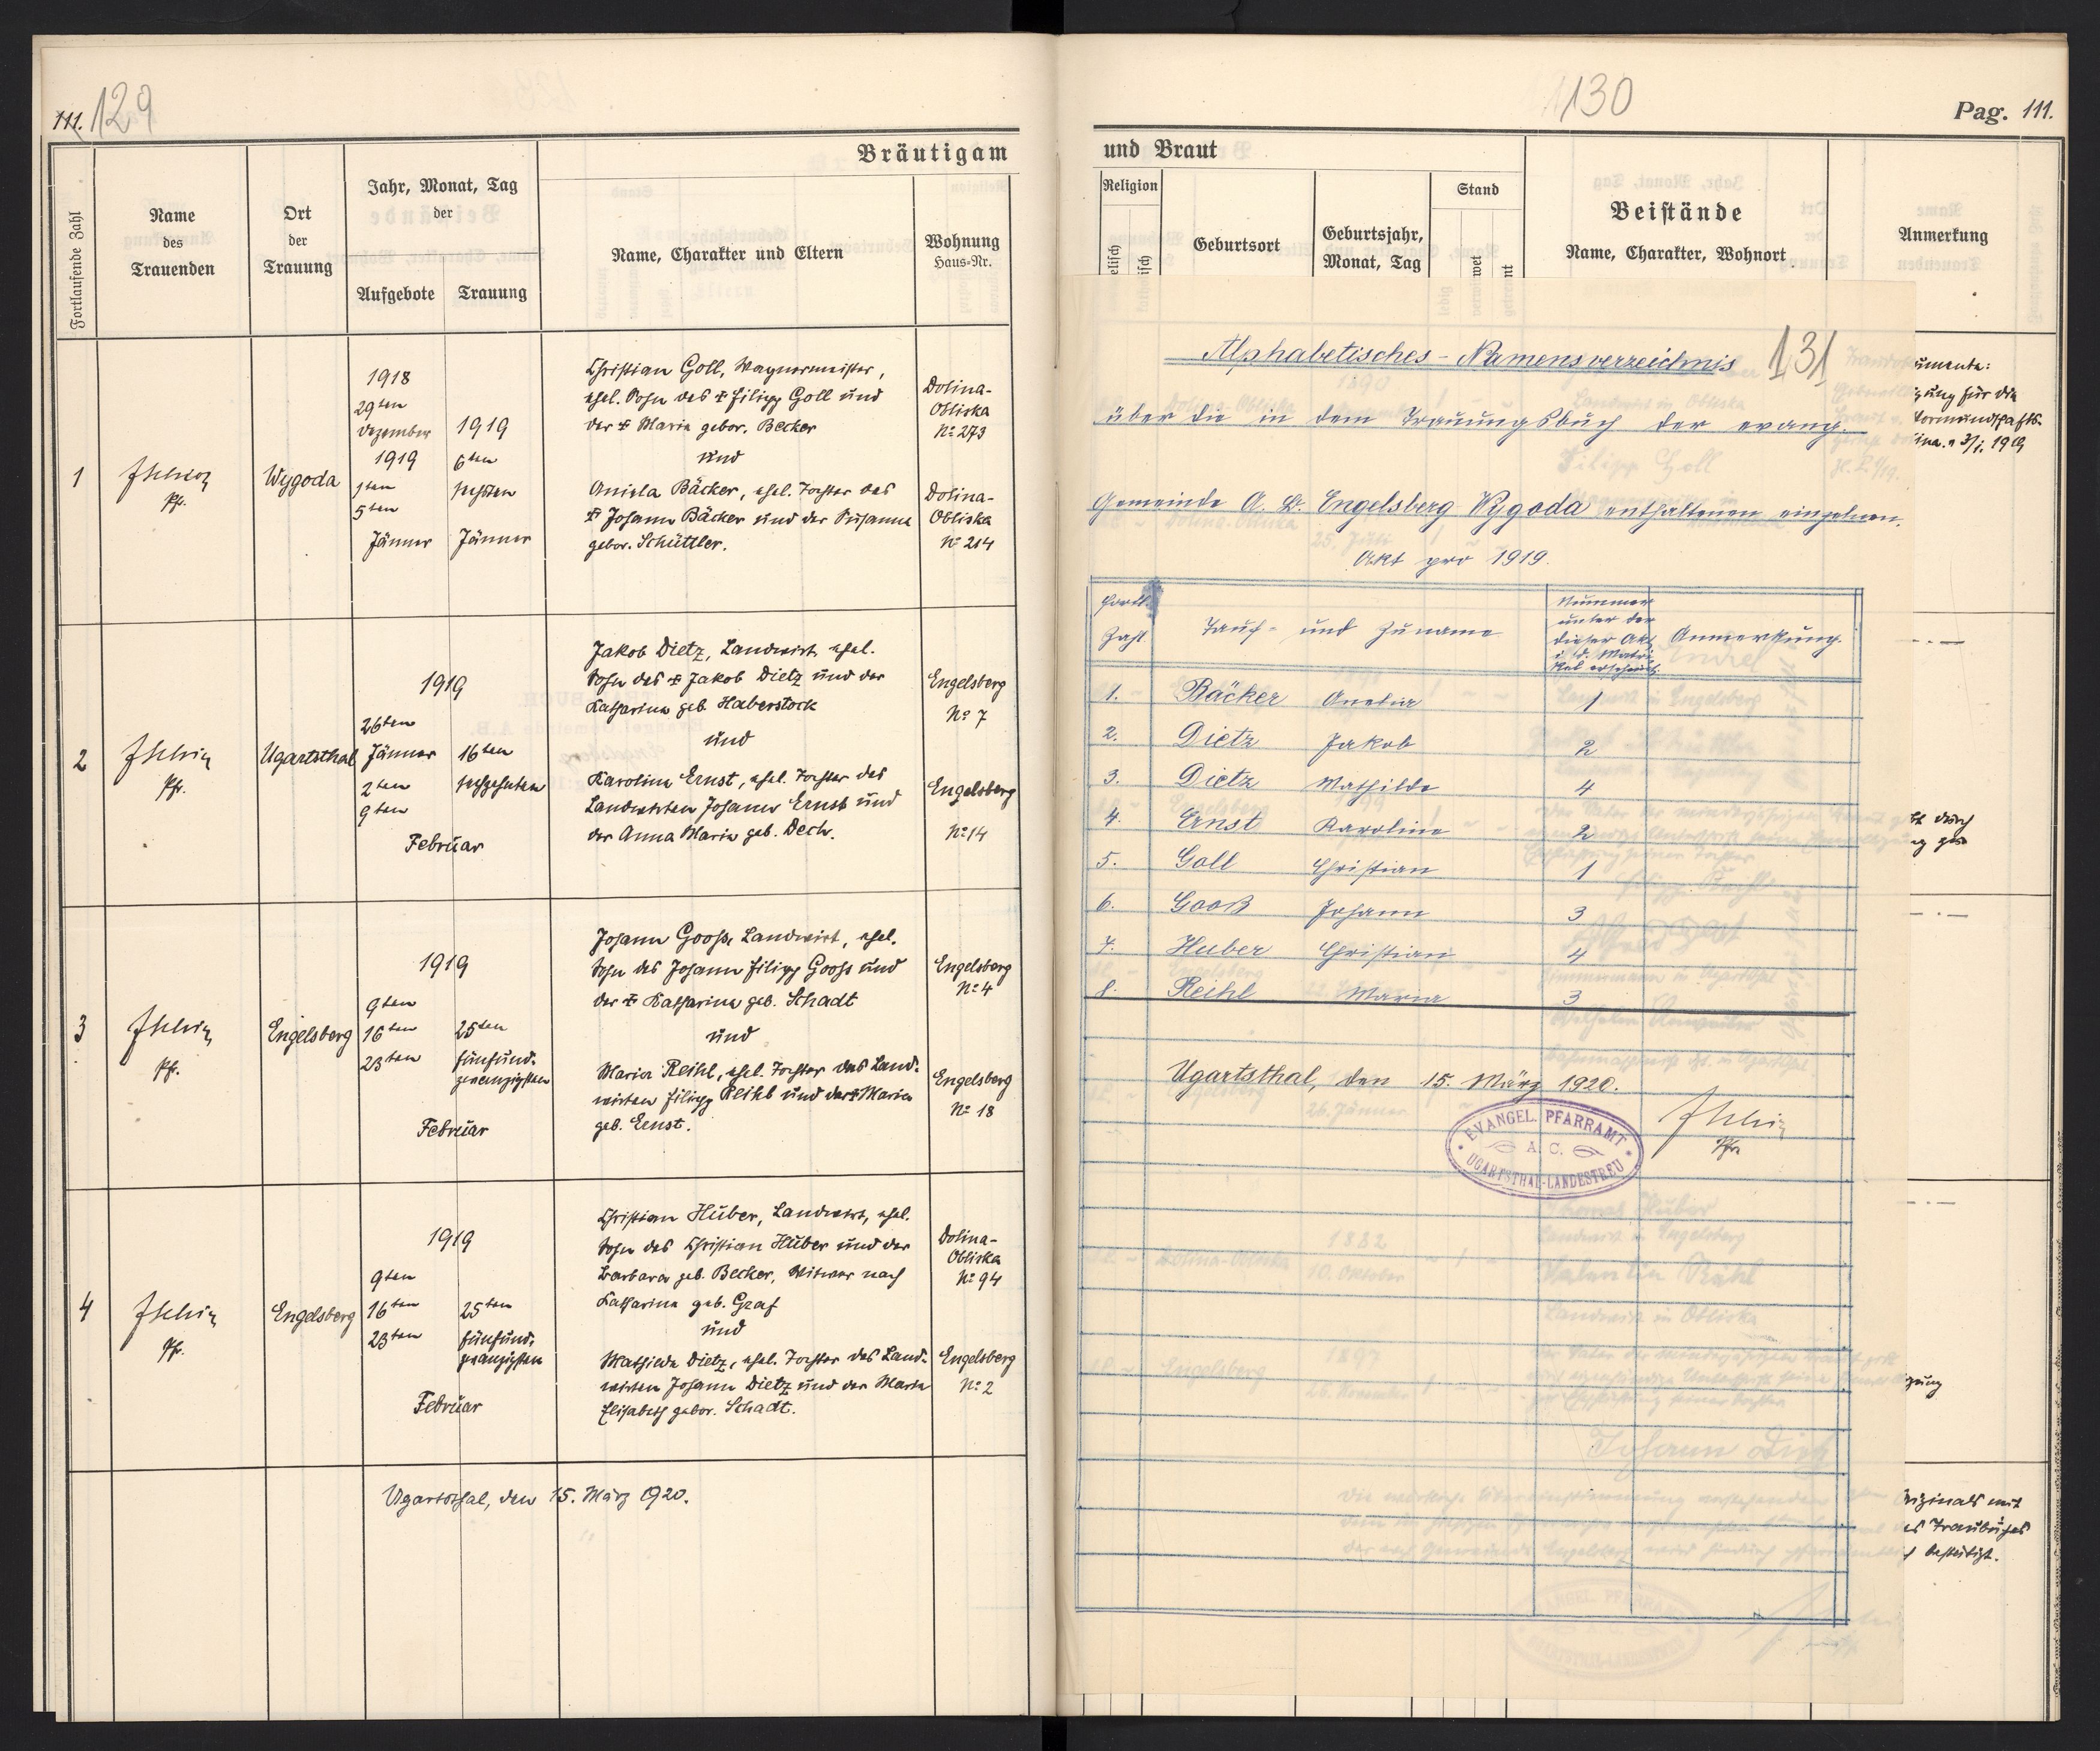 111. 129
Bräutigam
Fortlaufende Zahl
Name
des
Trauenden
Ort
der
Trauung
Jahr, Monat, Tag
der
Aufgebote
Trauung
Name, Charakter und Eltern
Wohnung
Haus-Nr.
1
Pfr.
Wygoda
1918
29ten
Dezember
1919
1ten
5ten
Jänner
1919
6ten
sechsten
Jänner
Christian Goll, Wagnermeister,
ehel. Sohn des ✝ Filipp Goll und
der ✝ Maria gebor. Becker
und
Aniela Bäcker, ehel. Tochter des
✝ Johann Bäcker und der Susanna
gebor. Schüttler.
Dolina-
Obliska
№ 273
Dolina-
Obliska
№ 214
2
Pfr.
Ugartsthal
1919
26ten
Jänner
2ten
9ten
16ten
sechzehnten
Februar
Jakob Dietz, Landwirt, ehel.
Sohn des ✝ Jakob Dietz und der
Katharina geb. Haberstock
und
Karolina Ernst, ehel. Tochter des
Landwirten Johann Ernst und
der Anna Maria geb. Dech.
Engelsberg
№ 7
Engelsberg
№ 14
3
Pfr.
Engelsberg
1919
9ten
16ten
23ten
25ten
fünfund-
zwanzigsten
Februar
Johann Gooß, Landwirt, ehel.
Sohn des Johann Filipp Gooß und
der ✝ Katharina geb. Schadt
und
Maria Reihl, ehel. Tochter des Land-
wirten Filipp Reihl und der ✝ Maria
geb. Ernst.
Engelsberg
№ 4
Engelsberg
№ 18
4
Pfr.
Engelsberg
1919
9ten
16ten
23ten
25ten
fünfund-
zwanzigsten
Februar
Christian Huber, Landwirt, ehel.
Sohn des Christian Huber und der
Barbara geb. Becker, Witwer nach
Katharina geb. Graf
und
Mathilde Dietz, ehel. Tochter des Land-
wirten Johann Dietz und der Maria
Elisabeth gebor. Schadt.
Dolina-
Obliska
№ 94
Engelsberg
№ 2
Ugartsthal, den 15. März 1920.
130
Pag. 111.
und Braut
Religion
Geburtsort
Geburtsjahr,
Monat, Tag
Stand
Beistände
Name, Charakter, Wohnort
Anmerkung
Alphabetisches - Namensverzeichnis 131
über die in dem Trauungsbuch der evang.
Gemeinde A. B. Engelsberg Wygoda enthaltenen einzelnen
Akt pro 1919.
Fortl.
Zahl
Tauf- und Zuname
Nummer
unter der
dieser Akt
i. d. Matri-
kel erscheint
Anmerkung.
1. Bäcker Aniela 1
2. Dietz Jakob 2
3. Dietz Mathilde 4
4. Ernst Karoline 2
5. Goll Christian 1
6. Gooß Johann 3
7. Huber Christian 4
8. Reihl Maria 3
Ugartsthal, den 15. März 1920.
Pfr.
EVANGEL. PFARRAMT
A. C.
UGARTSTHAL-LANDESTREU